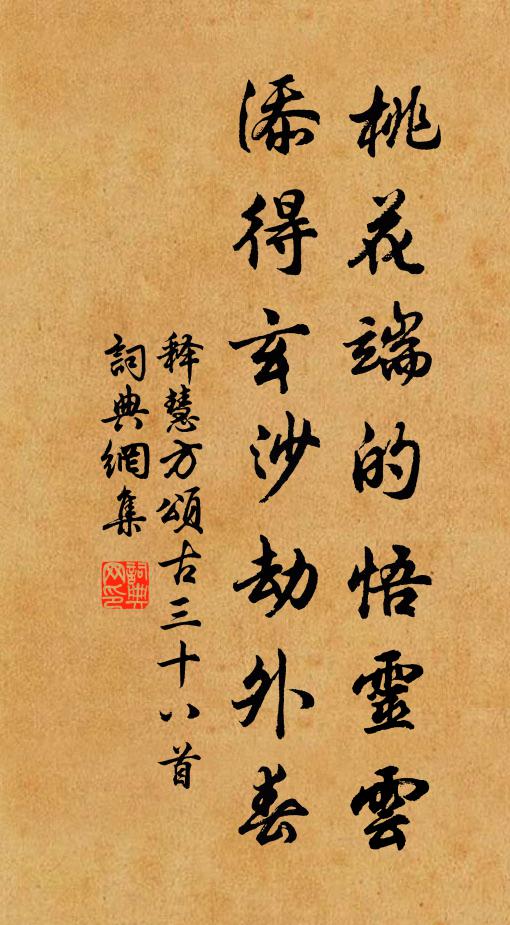 桃花端的悟靈雲
添得玄沙劫外春
釋慧方頌古三十八首
詞典網集
詞典網印